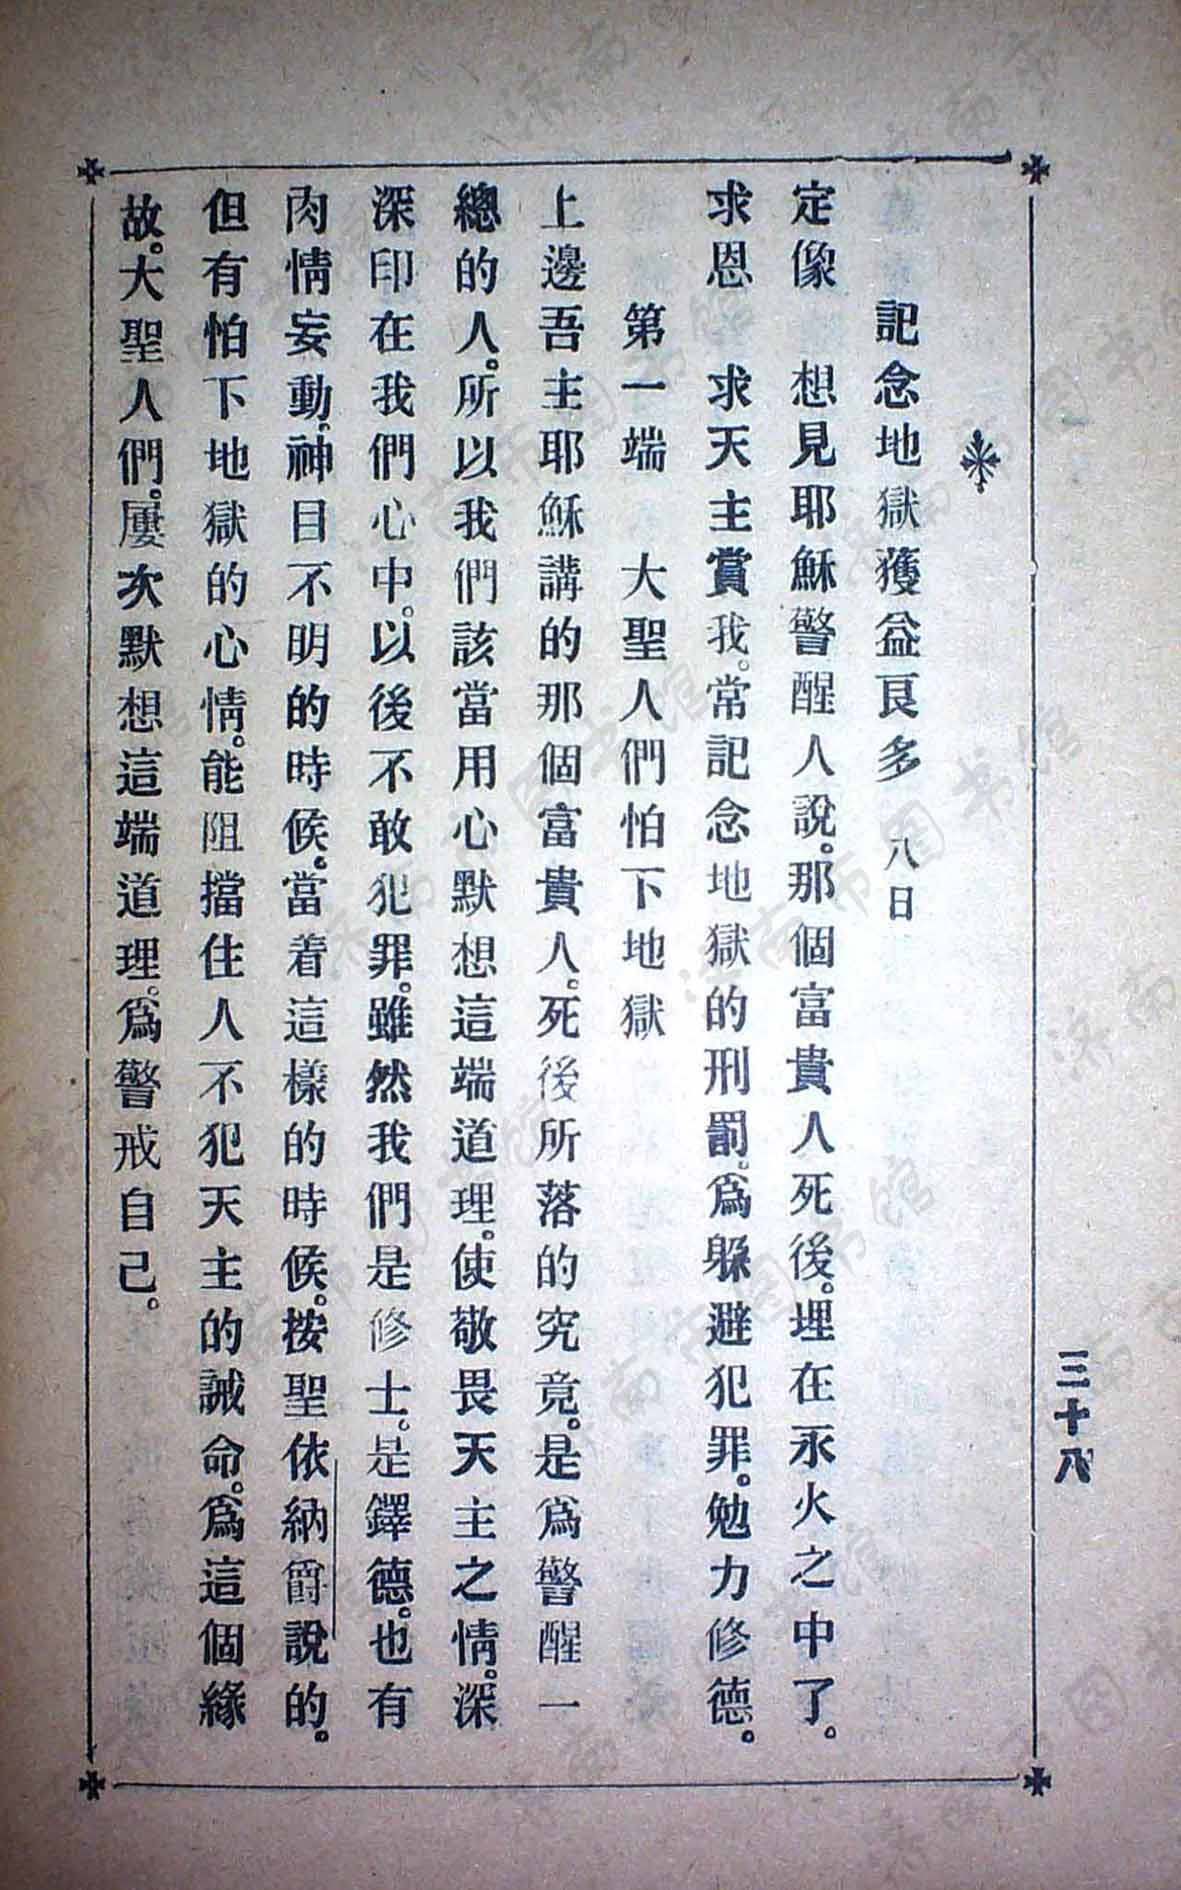 三十八
記念地獄獲益良多　八日
定像　想見耶穌警醒人說。那個富貴人死後。埋在永火之中了。
求恩　求天主賞我。常記念地獄的刑罰。爲躲避犯罪。勉力修德。
第一端　大聖人們怕下地獄
上邊吾主耶穌講的那個富貴人。死後所落的究竟。是爲警醒一
總的人。所以我們該當用心默想這端道理。使敬畏天主之情。深
深印在我們心中。以後不敢犯罪。雖然我們是修士。是鐸德。也有
肉情妄動。神目不明的時候。當着這樣的時候。按聖依納爵說的。
但有怕下地獄的心情。能阻擋住人不犯天主的誡命。爲這個緣
故。大聖人們。屢次默想這端道理。爲警戒自己。